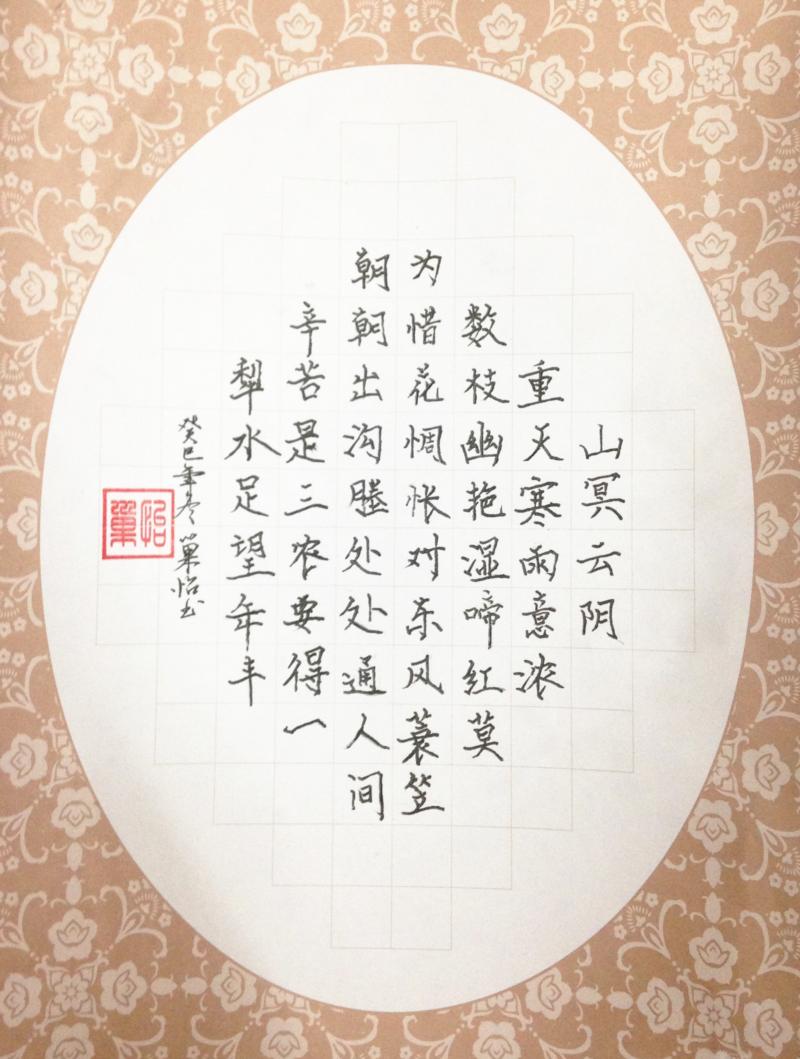 山冥云阴
重天寒雨意浓
数枝幽艳湿啼红莫
为惜花惆怅对东风蓑笠
朝朝出沟塍处处通人间
辛苦是三农要得一
犁水足望年丰
癸巳年冬 怡书
怡